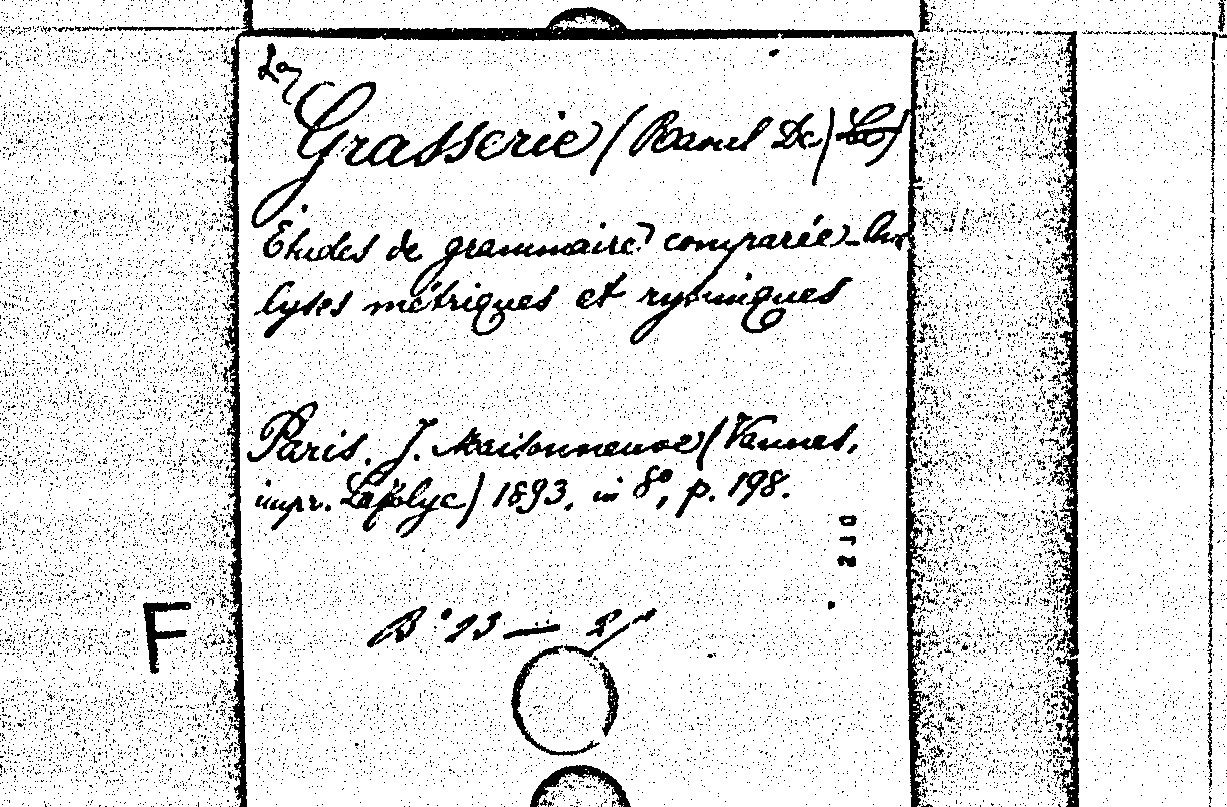 La
Grasserie (Raoul De) La
Études de grammaire comparée. Ana
lyses métriques et rythmiques
Paris, J. Maisonneuve (Vannes,
impr. Lafolye) 1893, in 8º, p. 198.
F